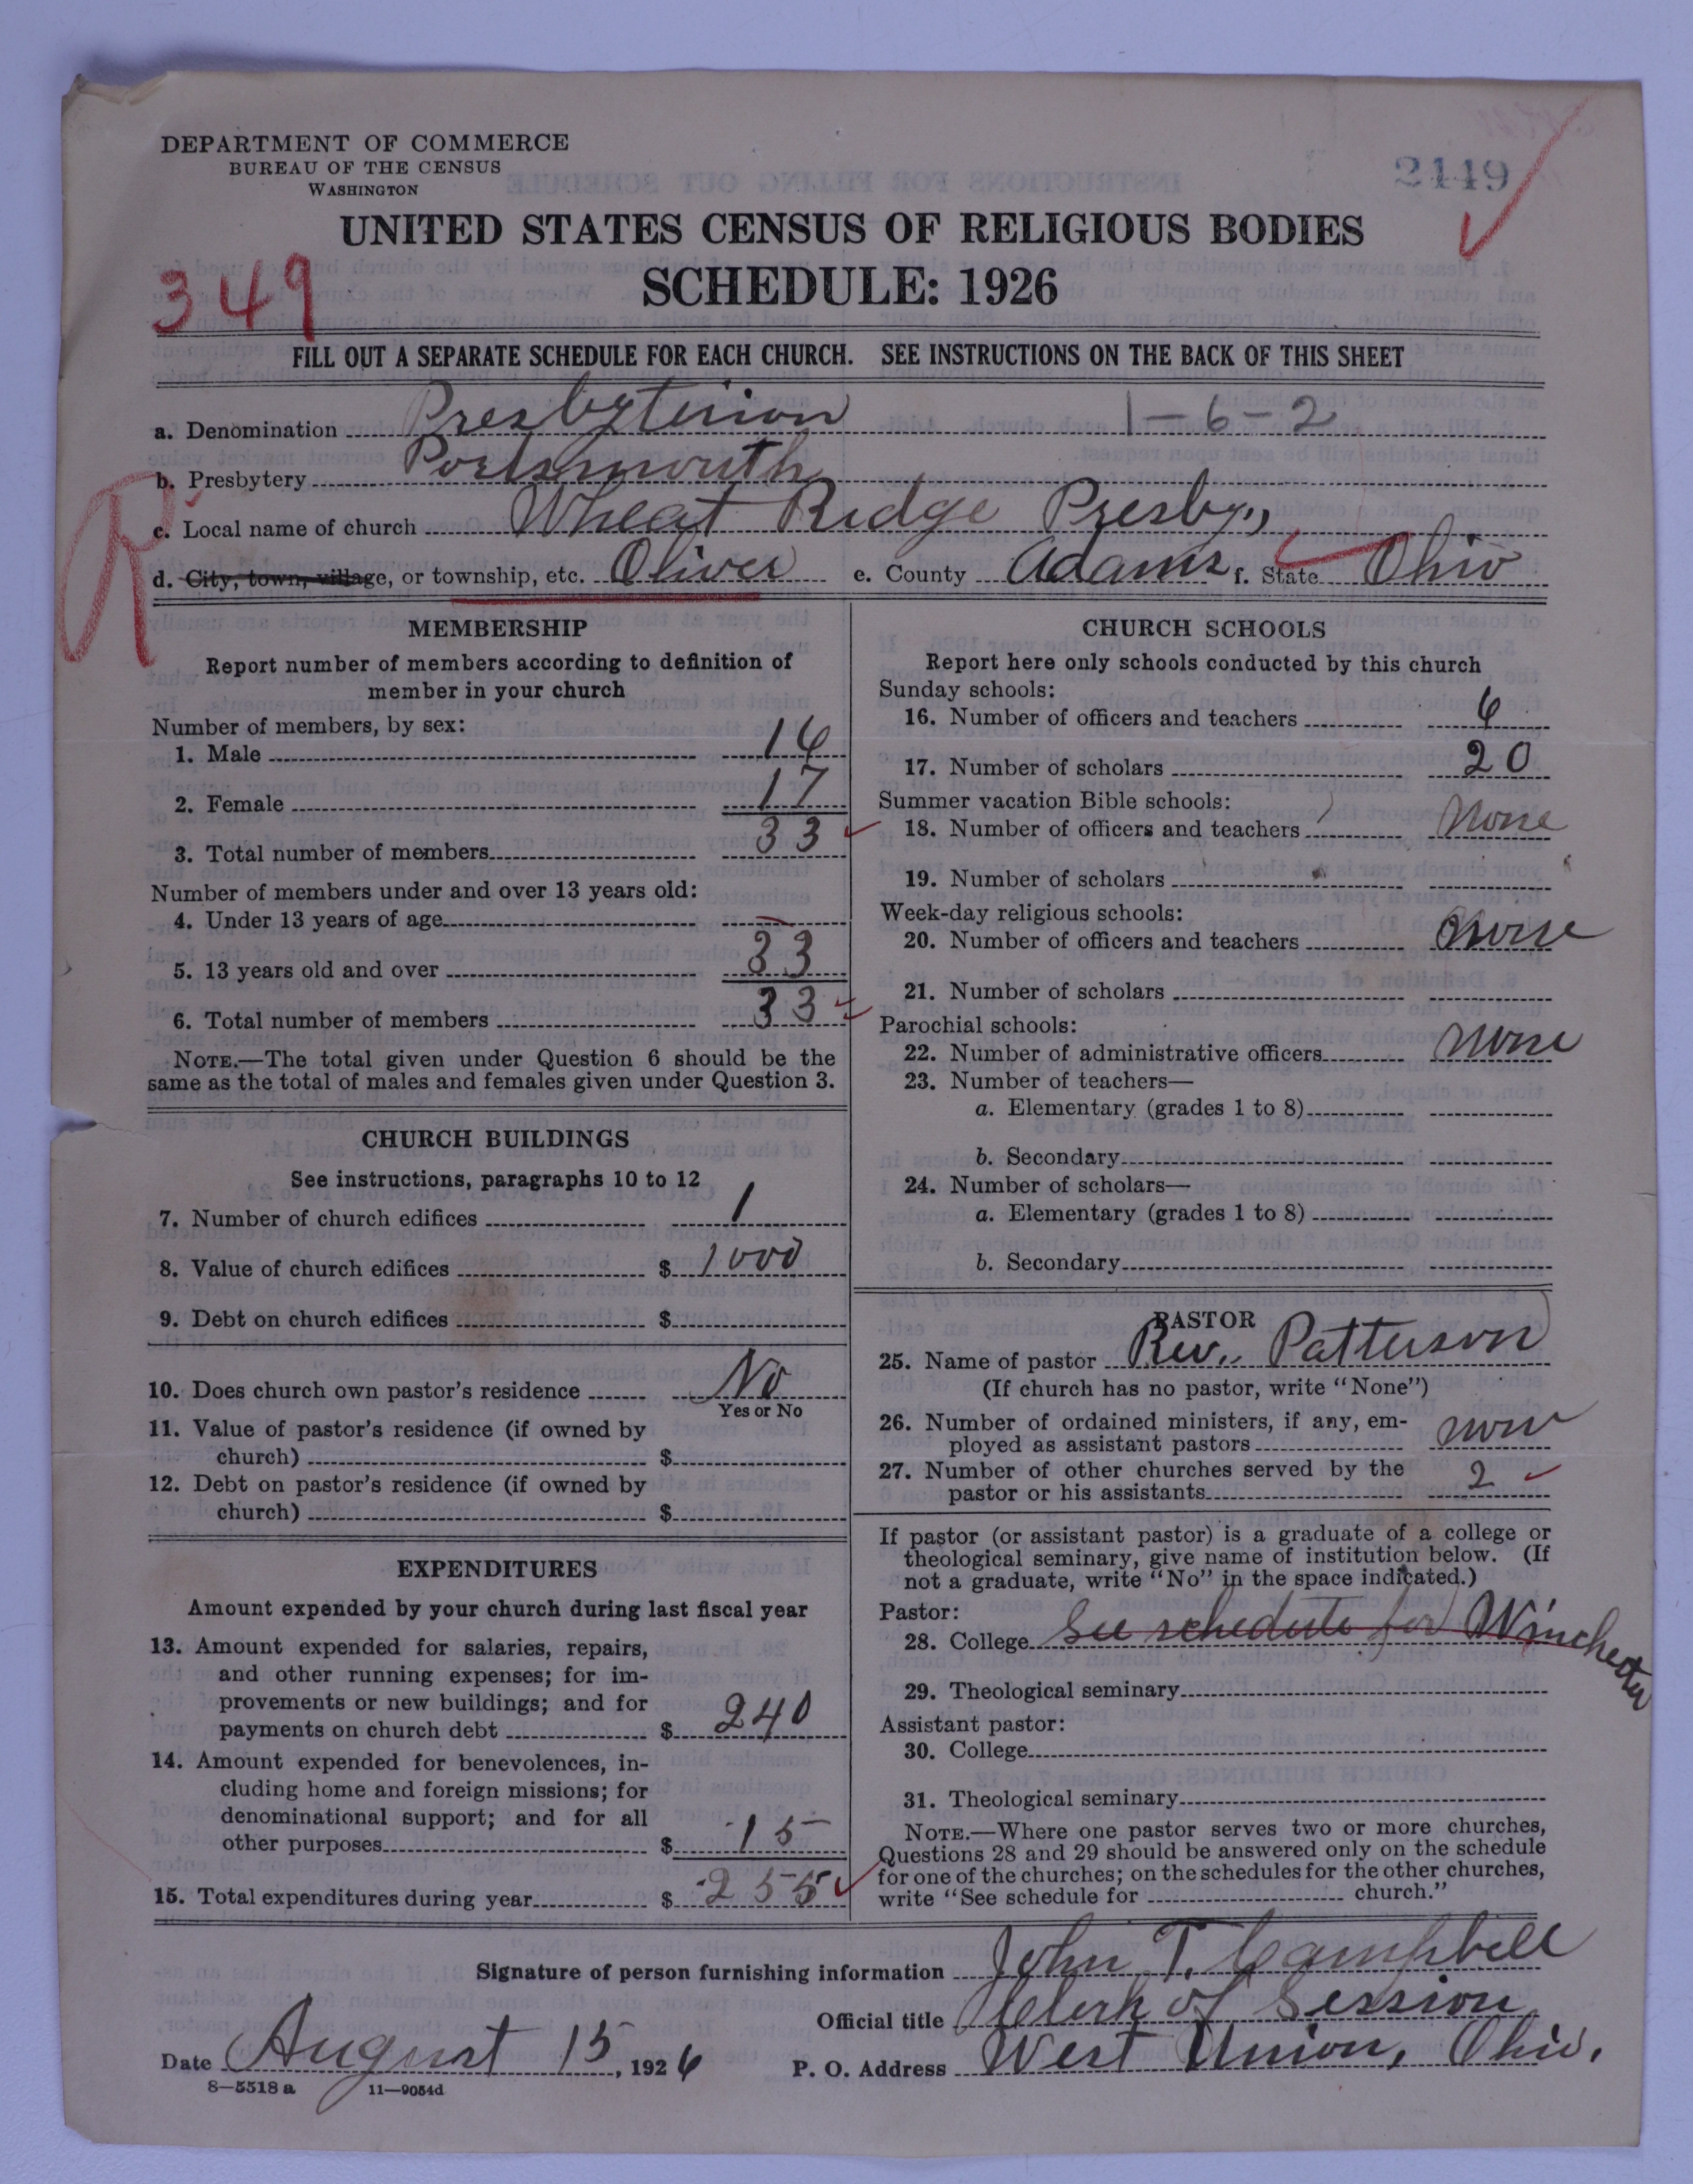 DEPARTMENT OF COMMERCE
BUREAU OF THE CENSUS
WASHINGTON
2449
UNITED STATES CENSUS OF RELIGIOUS BODIES
SCHEDULE: 1926
349
FILL OUT A SEPARATE SCHEDULE FOR EACH CHURCH. SEE INSTRUCTIONS ON THE BACK OF THIS SHEET
a. Denomination Presbyterian 1-6-2
b. Presbytery Portsmouth
R
c. Local name of church Wheat Ridge Presby.,
d. City, town, village, or township, etc. Oliver e. County Adams f. State Ohio
MEMBERSHIP
Report number of members according to definition of
member in your church
Number of members, by sex:
1. Male 16
2. Female 17
3. Total number of members 33
Number of members under and over 13 years old:
4. Under 13 years of age —
5. 13 years old and over 33
6. Total number of members 33
NOTE.—The total given under Question 6 should be the
same as the total of males and females given under Question 3.
CHURCH BUILDINGS
See instructions, paragraphs 10 to 12
7. Number of church edifices 1
8. Value of church edifices $ 1000
9. Debt on church edifices $
10. Does church own pastor's residence No
Yes or No
11. Value of pastor's residence (if owned by
church) $
12. Debt on pastor's residence (if owned by
church) $
EXPENDITURES
Amount expended by your church during last fiscal year
13. Amount expended for salaries, repairs,
and other running expenses; for im-
provements or new buildings; and for
payments on church debt $ 240
14. Amount expended for benevolences, in-
cluding home and foreign missions; for
denominational support; and for all
other purposes $ 15
15. Total expenditures during year $ 255
CHURCH SCHOOLS
Report here only schools conducted by this church
Sunday schools:
16. Number of officers and teachers 6
17. Number of scholars 20
Summer vacation Bible schools:
18. Number of officers and teachers None
19. Number of scholars
Week-day religious schools:
20. Number of officers and teachers None
21. Number of scholars
Parochial schools:
22. Number of administrative officers None
23. Number of teachers—
a. Elementary (grades 1 to 8)
b. Secondary
24. Number of scholars—
a. Elementary (grades 1 to 8)
b. Secondary
PASTOR
25. Name of pastor Rev. Patterson
(If church has no pastor, write "None")
26. Number of ordained ministers, if any, em-
ployed as assistant pastors none
27. Number of other churches served by the
pastor or his assistants 2
If pastor (or assistant pastor) is a graduate of a college or
theological seminary, give name of institution below. (If
not a graduate, write "No" in the space indicated.)
Pastor:
28. College See schedule for Winchester
29. Theological seminary
Assistant pastor:
30. College
31. Theological seminary
NOTE.—Where one pastor serves two or more churches,
Questions 28 and 29 should be answered only on the schedule
for one of the churches; on the schedules for the other churches,
write "See schedule for church."
Signature of person furnishing information John T. Campbell
Official title Clerk of Session
Date August 15, 1926 P. O. Address West Union, Ohio.
8—5518 a 11—9054d